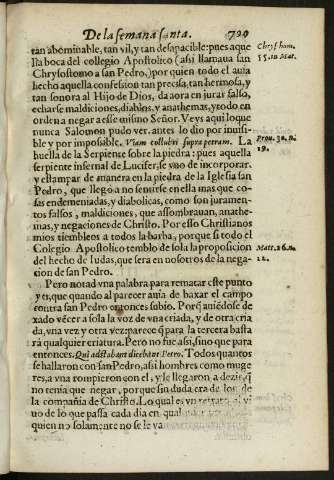 De la semana santa. 799
tan abominable, tan vil, y tan desapacible: pues aque
lla boca del collegio Apostolico (assi llamaua san
Chrysostomo a san Pedro,) por quien todo el auia
hecho aquella confession tan precisa, tan hermosa, y
tan sonora al Hijo de Dios, da aora en jurar falso,
echarse maldiciones, diablos, y anathemas, y todo en
orden a negar a esse mismo Señor. Veys aqui loque
nunca Salomon pudo ver, antes lo dio por inuisi-
ble y por imposible. Viam colubri supra petram. La
huella de la Serpiente sobre la piedra: pues aquella
serpiente infernal de Lucifer de vno de incorporar,
y estampar de manera en la piedra de la Iglesia san
Pedro, que llegò a no sentirse en ella mas que co-
sas endemeniadas, y diabolicas, como son juramen-
tos falsos, maldiciones, que assombrauan, anathe-
mas, y negaciones de Christo. Por esso Christianos
mios tiemblen a todos la barba, porque si todo el
Colegio Apostolico temblo de sola la proposicion
del hecho de Iudas, que serà en nosotros de la nega-
cion de san Pedro.
Pero notad vna palabra para rematar este punto
y es, que quando al parecer auia de baxar el campo
contra san Pedro entonces subio. Porque auiendose de
xado vécer a sola la voz de vna criada, y de otra cria
da, vna vez y otra vez: parece que para la tercera basta
rà qualquier criatura. Pero no fue assi, sino que para
entonces. Qui adstabant dicebant Petro. Todos quantos
se hallaron con san Pedro, assi hombres como muge
res, a vna rompieron con el, y le llegaron a dezir, que
no tenia que negar, porque sin duda era de los de
la compañia de Christo. Lo qual es vn retrato al vi
uo de lo que passa cada dia en
quien no solamente no se le va
Chrysost. hom.
55. in Mat.
Prou. 30. n.
19.
Matt. 26. n.
22.